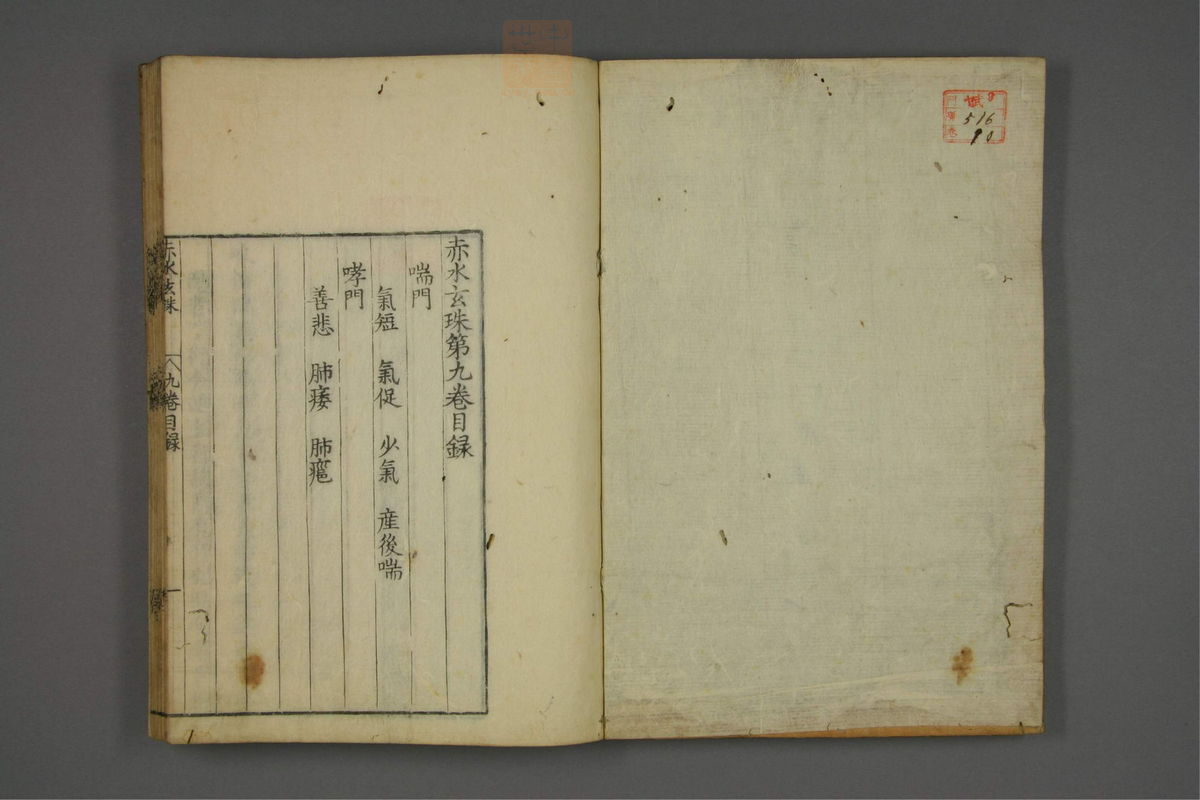 516
90
赤水玄珠第九卷目録
喘門
氣短　氣促　少氣　産後喘
哮門
善悲　肺痿　肺癰
赤水玄珠　九卷目録　一